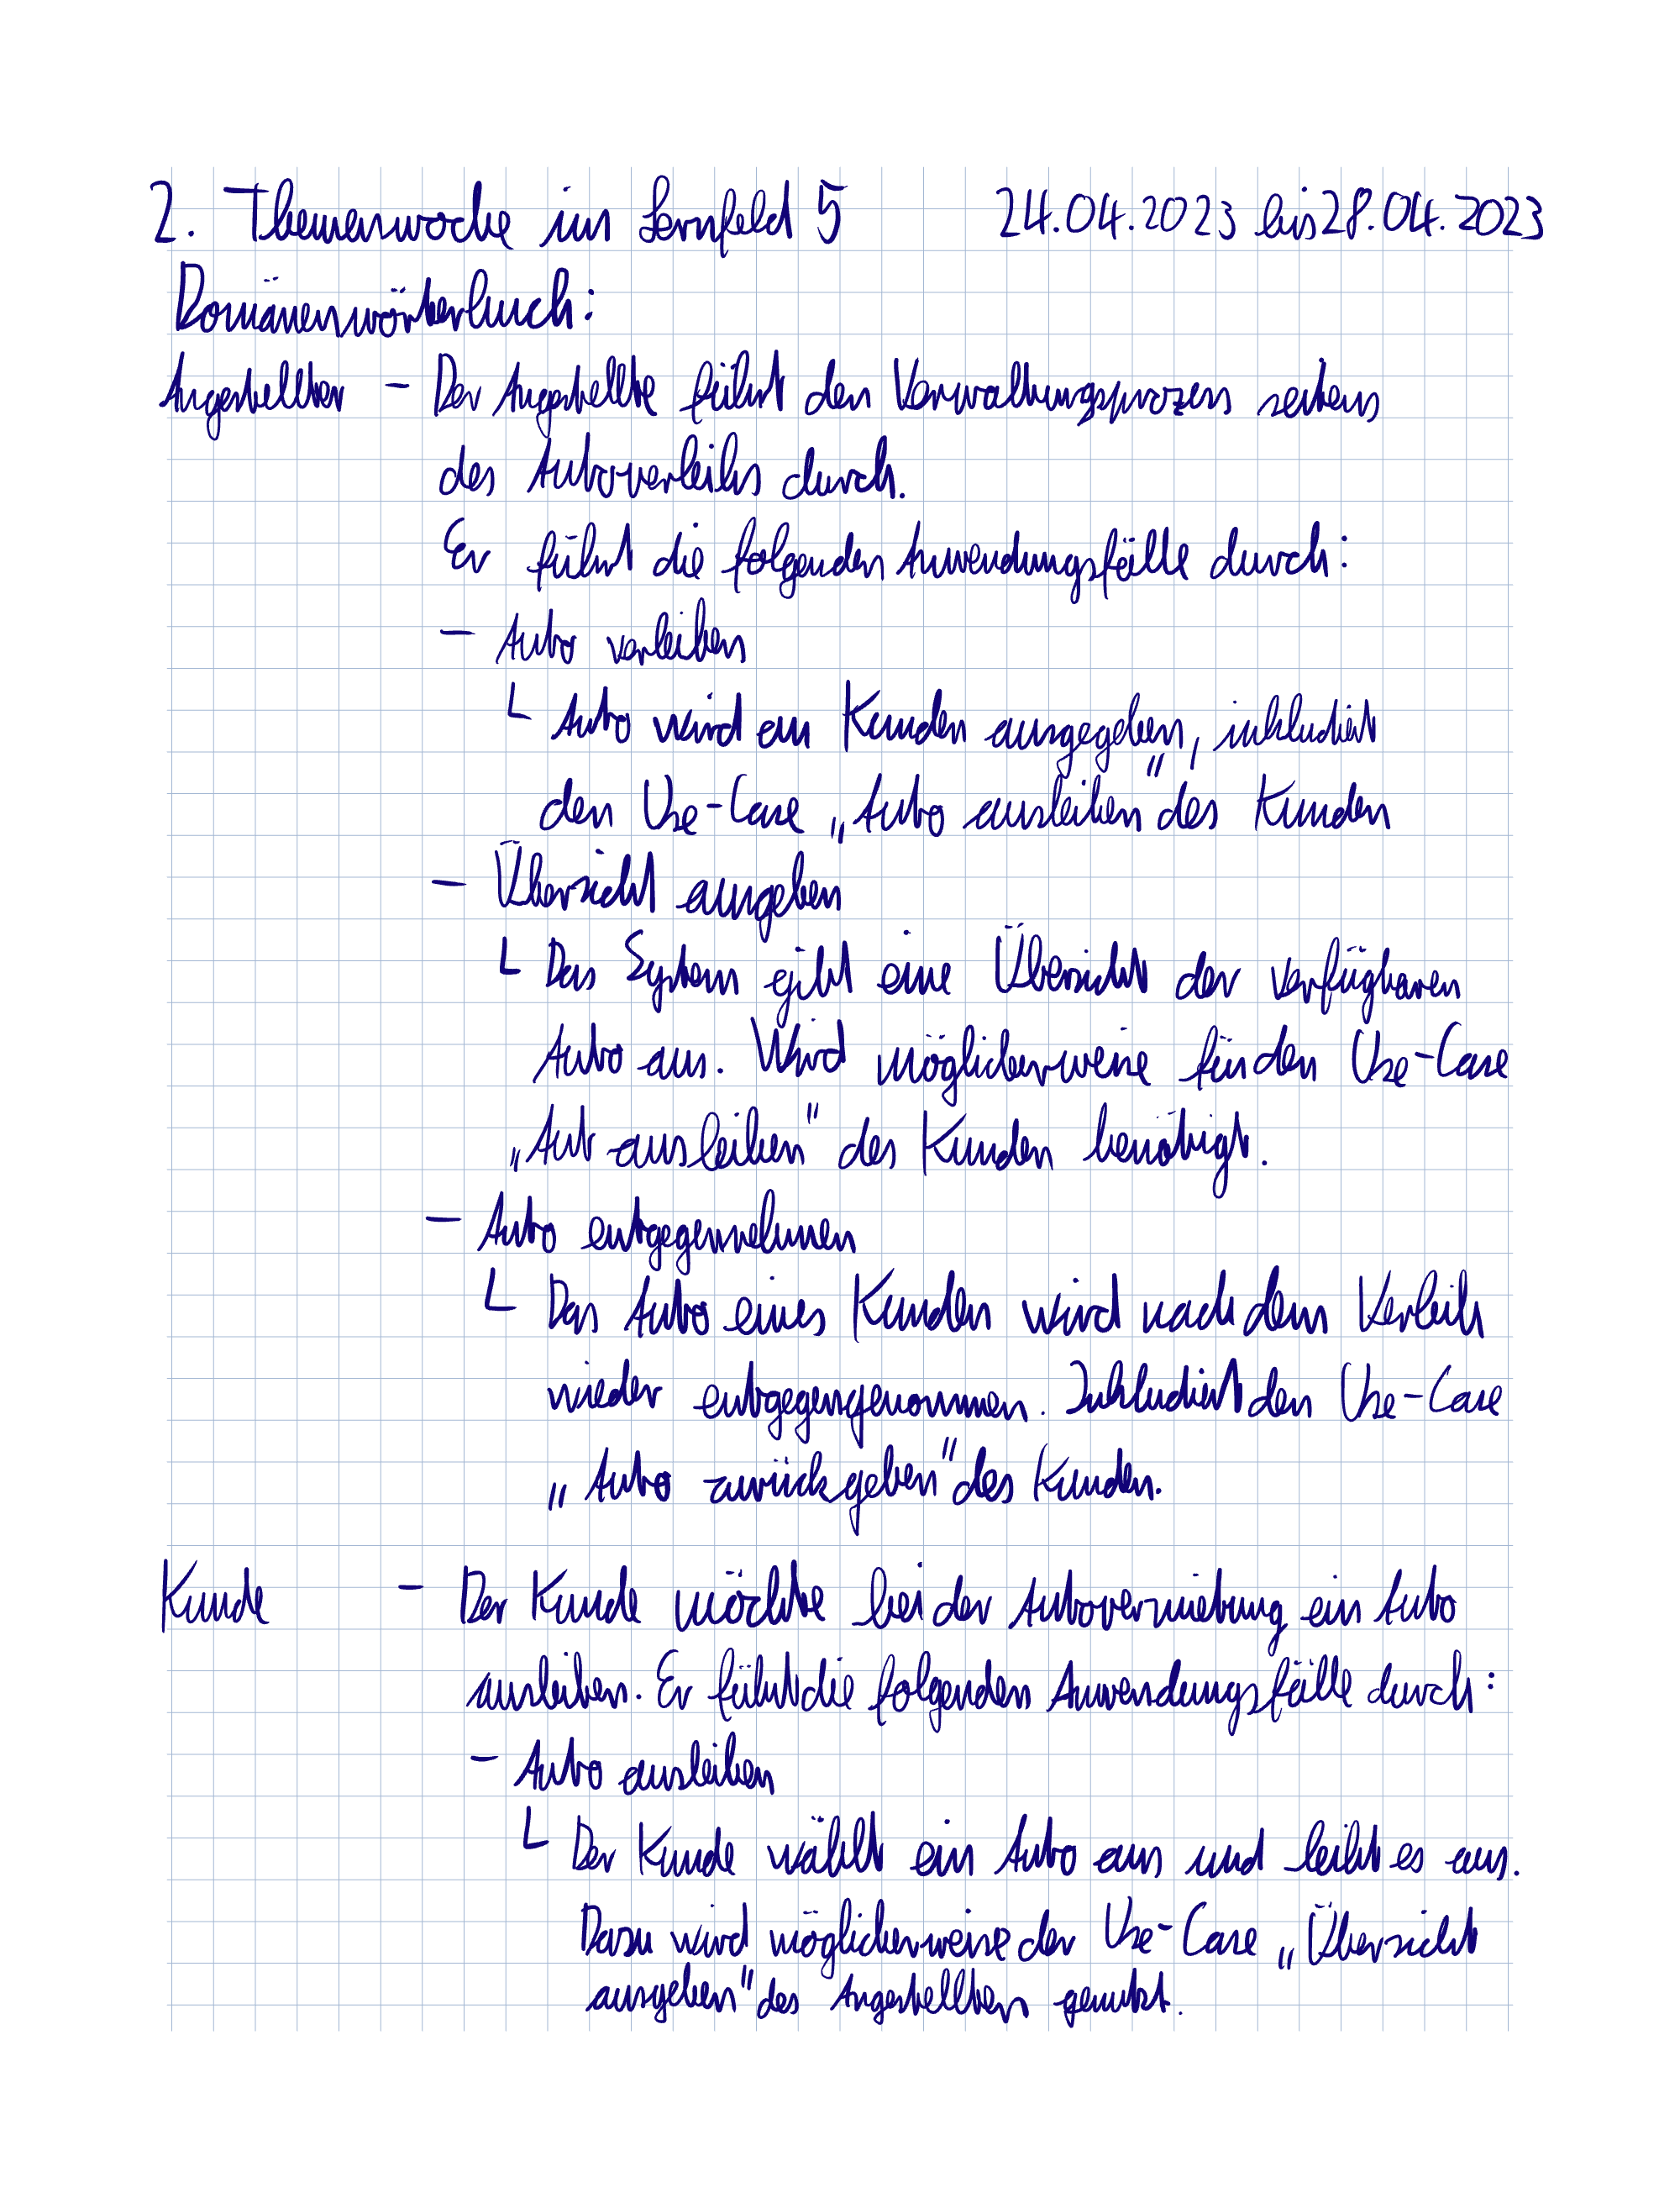 2. Themenwoche im Lernfeld 5 24.04.2023 bis 28.04.2023
Domänenwörterbuch:
Angestellter - Der Angestellte führt den Verwaltungsprozess seitens
des Autoverleihs durch.
Er führt die folgenden Anwendungsfälle durch:
- Auto verleihen
└ Auto wird an Kunden ausgegeben, inkludiert
den Use-Case „Auto ausleihen" des Kunden
- Übersicht ausgeben
└ Das System gibt eine Übersicht der verfügbaren
Auto aus. Wird möglicherweise für den Use-Case
„Aut ausleihen" des Kunden benötigt.
- Auto entgegennehmen
└ Das Auto eines Kunden wird nach dem Verleih
wieder entgegengenommen. Inkludiert den Use-Case
„Auto zurückgeben" des Kunden.
Kunde - Der Kunde möchte bei der Autovermietung ein Auto
ausleihen. Er führt die folgenden Anwendungsfälle durch:
- Auto ausleihen
└ Der Kunde wählt ein Auto aus und leiht es aus.
Dazu wird möglicherweise der Use-Case „Übersicht
ausgeben" des Angestellten genutzt.